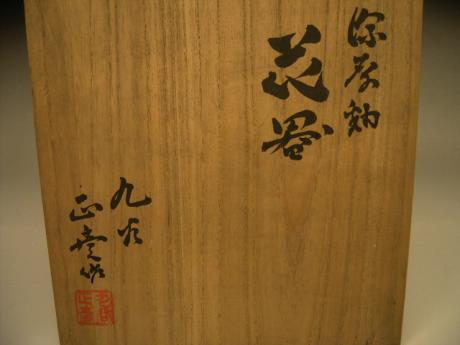 深厚釉
花器
九谷
正堂作